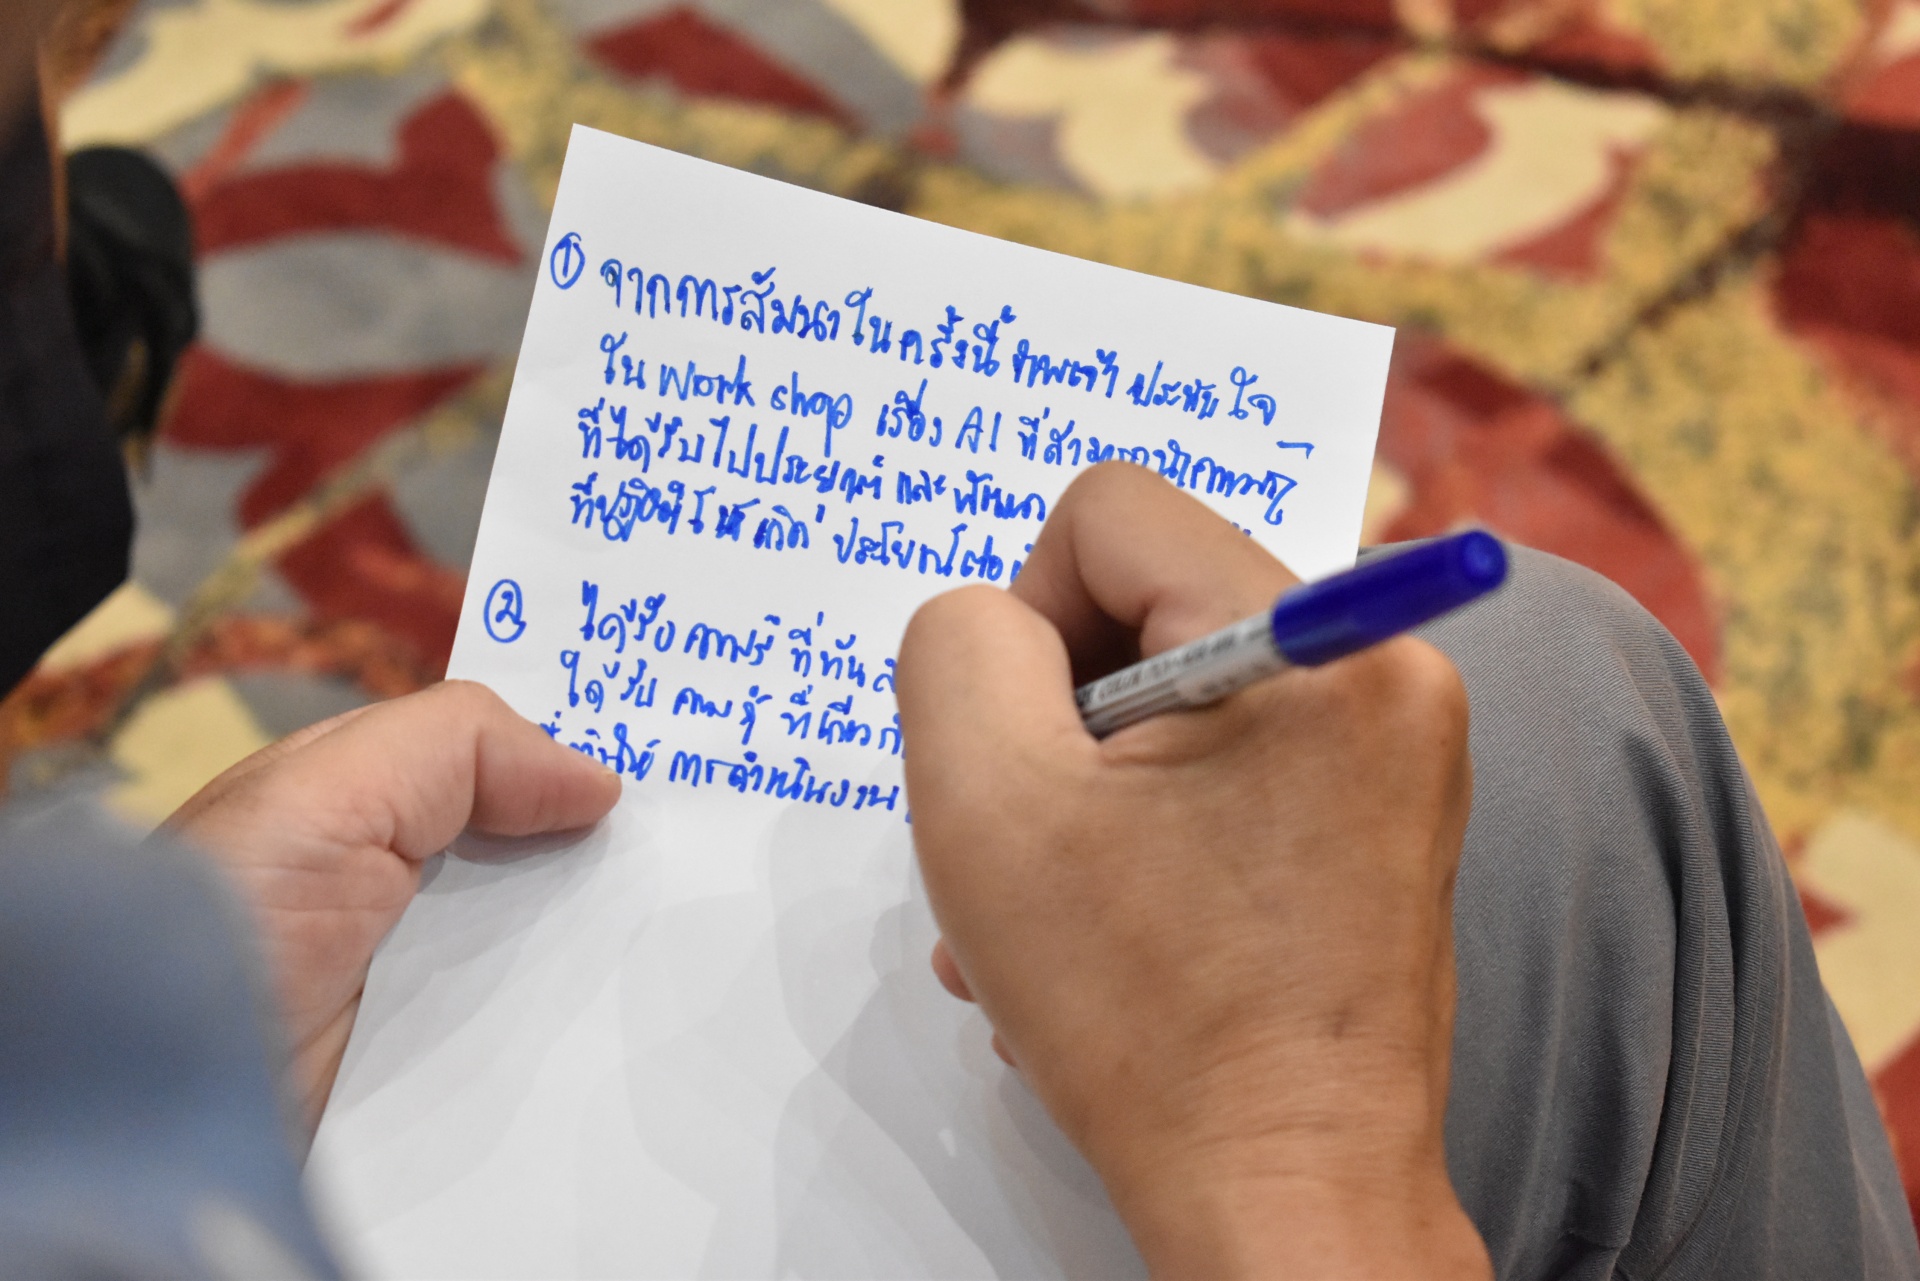 ① จากการสัมนาในครั้งนี้ ข้าพเจ้า ประทับใจ
ใน work shop เรื่อง AI ที่สามารถนำความรู้
ที่ได้รับไปประยุกต์ และพัฒนา
ให้เกิด ประโยชน์ต่อ
② ได้รับ ความรู้ ที่ทัน
ได้รับ ความรู้ ที่เกี่ยว
การดำเนินงาน